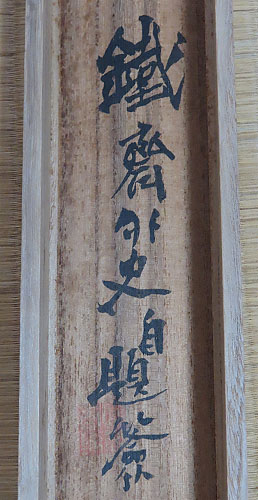 鐵齋外史自題簽